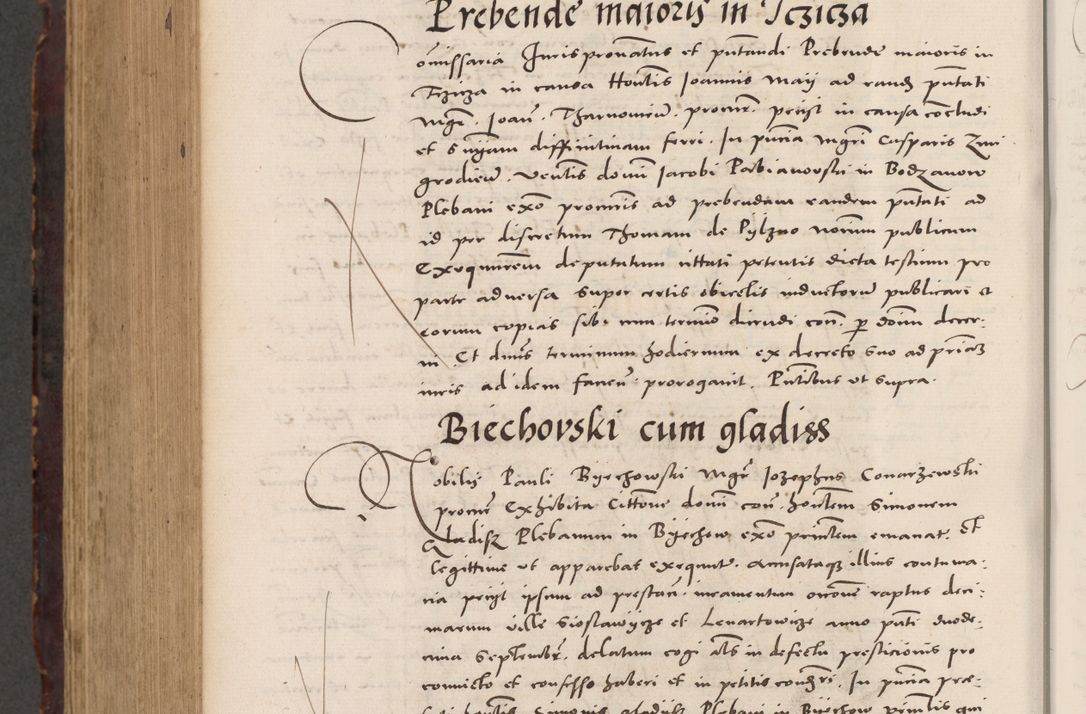 Prebende maioris in Tczicza
Comissaria Juris pronatus et putandi Prebende maioris in
Tczicza in causa Honlis Joannis Maij ad eandz putati
Mgr. Joan. Tharnowieu. procur. petijt in causa concludi
et sniam diffinitiuam ferri. In pncia Mgri Casparis Zmi
grodien. Venlis domi Jacobi Pabianowski in Bodzanow
Plebani exo procuris ad prebendam eandem putati ad
id per discretum Thomam de Pylzno notrium publicum
Exequutem deputatum cittati petentis dicta testium pro
parte aduersa super certis obiectis inductoru publicari et
eorum copias sibi cum termio dicendi con. per domi decer-
ni. Et dnus terminum hodiernum ex decreto suo ad priaz
iuris ad idem facien. prorogauit. Pntibus ut supra.
Biechovski cum gladiss
Nobilis Pauli Byechowski Mgr Jozephus Conarzewski
procur Exhibita Cittone domi con. hontem Simonem
Gladisz Plebanum in Byechow exo printem emanat. et
legittime ut apparebat exequuta. accusataqz illius contuma-
cia petijt ipsum ad prestan. iuramentum occone raptus deci-
marum ville Sioslawycze et Lenartowicze anno puti duode-
cima Septembr. delatum cogi als in defectu presticionis pro
conuicto et confesso haberi et in petitis condri. In pncia prae-
fati hontis Simonis gladisz Plebani in Byechow printis qui